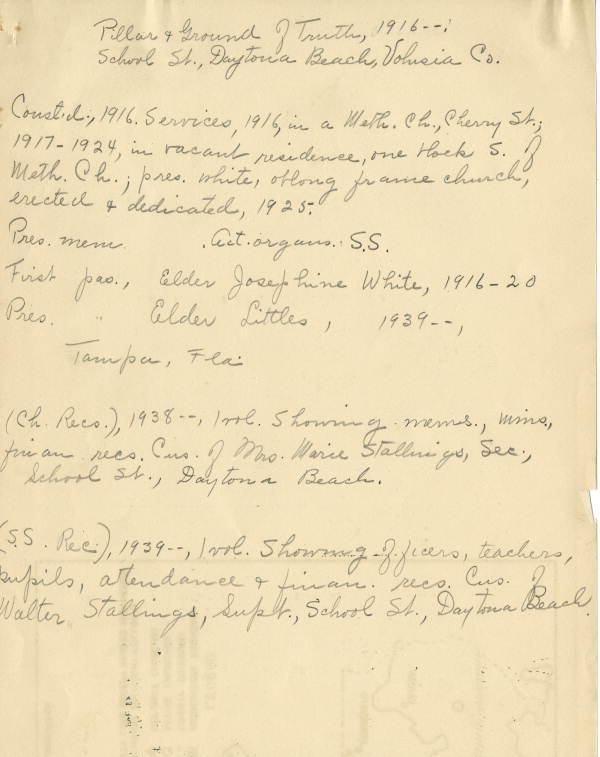 Pillar & Ground of Truth, 1916--;
School St., Daytona Beach, Volusia Co.
Const'd., 1916. Services, 1916, in a Meth. Ch., Cherry St.;
1917-1924, in vacant residence, one block S. of
Meth. Ch.; pres. white, oblong frame church,
erected & dedicated, 1925.
Pres. mem. Act. organs. S.S.
First pas., Elder Josephine White, 1916-20
Pres. " Elder Littles, 1939--,
Tampa, Fla.
(Ch. Recs.), 1938--, 1 vol. Showing mems., mins,
finan. recs. Cus. of Mrs. Marie Stallings, Sec.,
School St., Daytona Beach.
(S.S. Rec.), 1939--, 1 vol. Showing officers, teachers,
pupils, attendance & finan. recs. Cus. of
Walter Stallings, Supt., School St., Daytona Beach.